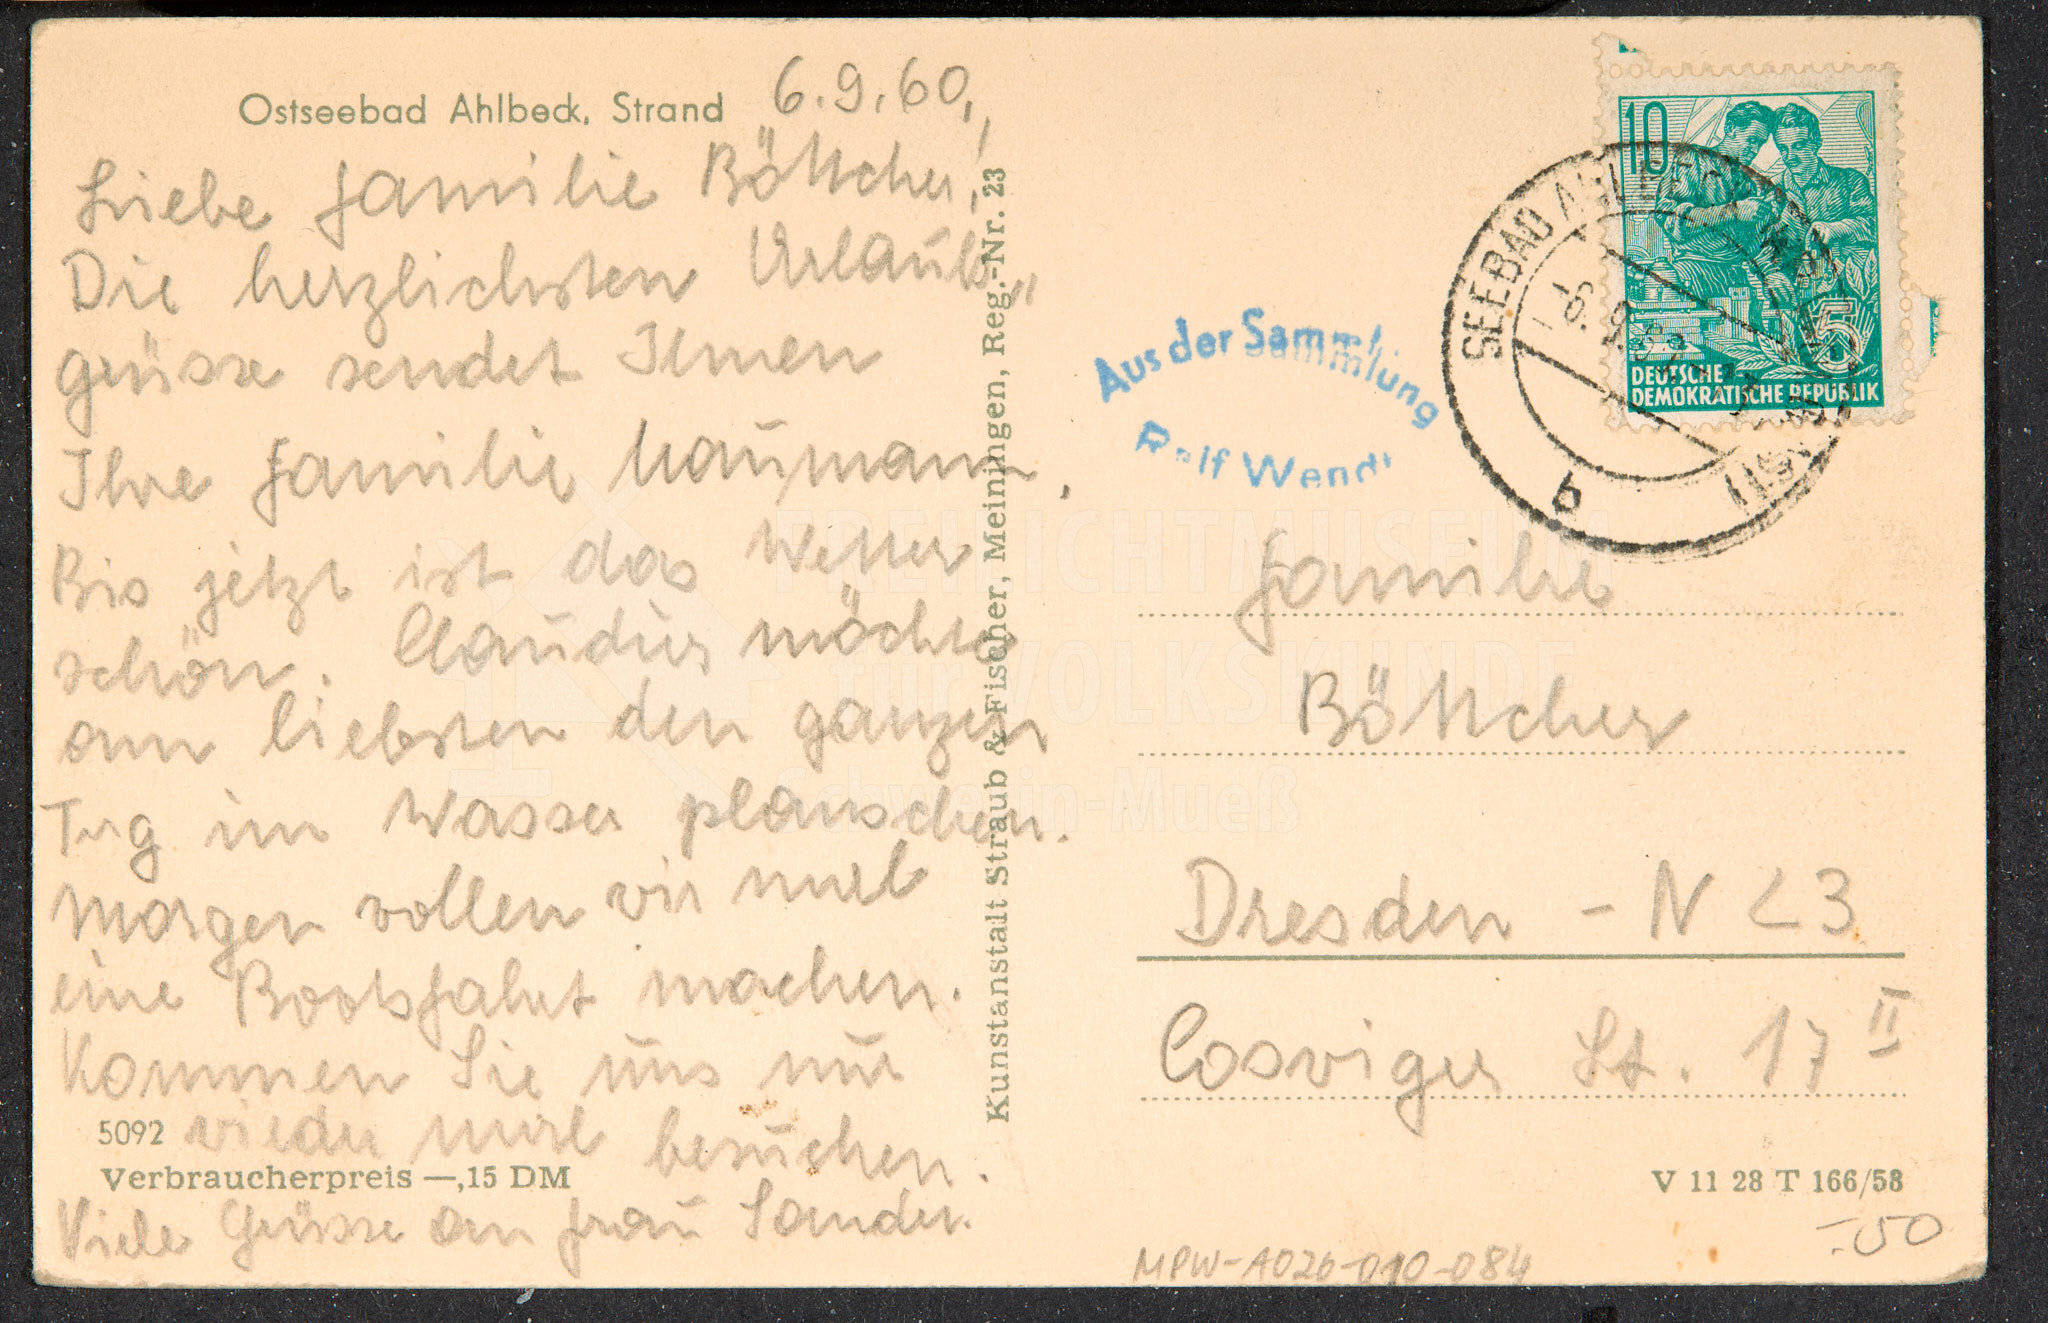 Ostseebad Ahlbeck, Strand
6.9.60,
Liebe Familie Böttcher!
Die herzlichsten Urlaubs„
grüsse sendet Ihnen
Ihre Familie Naumann.
Bis jetzt ist das Wetter
schön. Claudius möchte
am liebsten den ganzen
Tag im Wasser planschen.
Morgen wollen wir mal
eine Bootsfahrt machen.
Kommen Sie uns nur
wieder mal besuchen.
5092
Verbraucherpreis —,15 DM
Viele Grüsse an Frau Sander.
Kunstanstalt Straub & Fischer, Meiningen, Reg.-Nr. 23
Aus der Sammlung
Rolf Wendt
10
5
DEUTSCHE
DEMOKRATISCHE REPUBLIK
SEEBAD AHLBECK
b
Familie
Böttcher
Dresden - N 23
Cosviger St. 17 II
V 11 28 T 166/58
-.50
MPW-A026-010-084
FREILICHTMUSEUM
für VOLKSKUNDE
Schwerin-Mueß